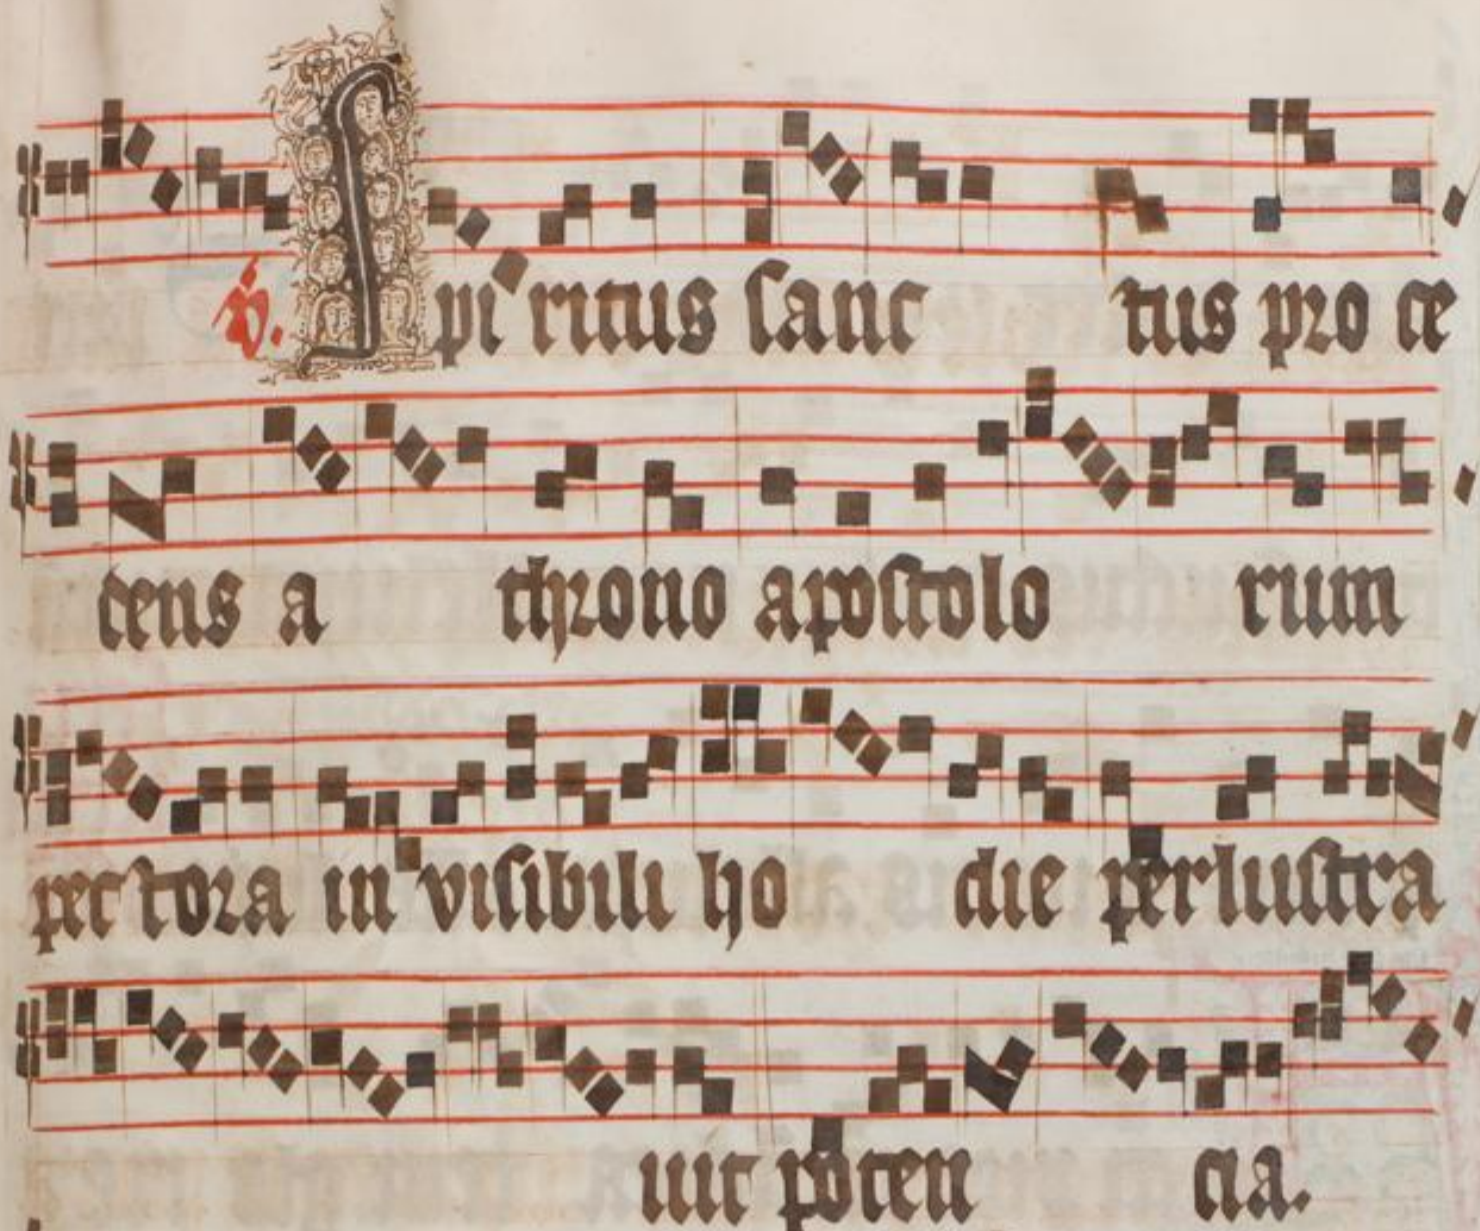 ℟. Spiritus sanc tus pro ce
dens a throno apostolo rum
pectora invisibili ho die perlustra
uit poten cia.